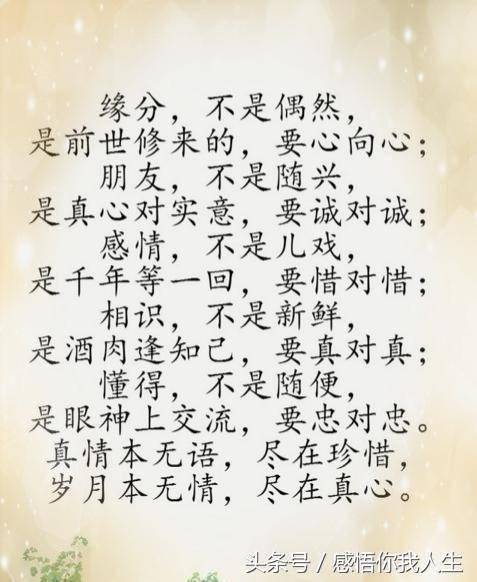 缘分，不是偶然，
是前世修来的，要心向心；
朋友，不是随兴，
是真心对实意，要诚对诚；
感情，不是儿戏，
是千年等一回，要惜对惜；
相识，不是新鲜，
是酒肉逢知己，要真对真；
懂得，不是随便，
是眼神上交流，要忠对忠。
真情本无语，尽在珍惜，
岁月本无情，尽在真心。
头条号/感悟你我人生